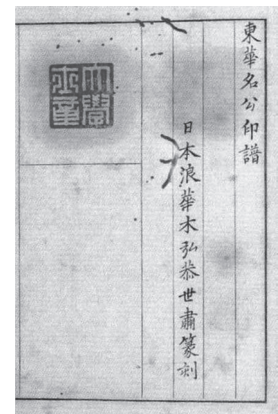 東華名公印譜
日本浪華木弘恭世肅篆刻